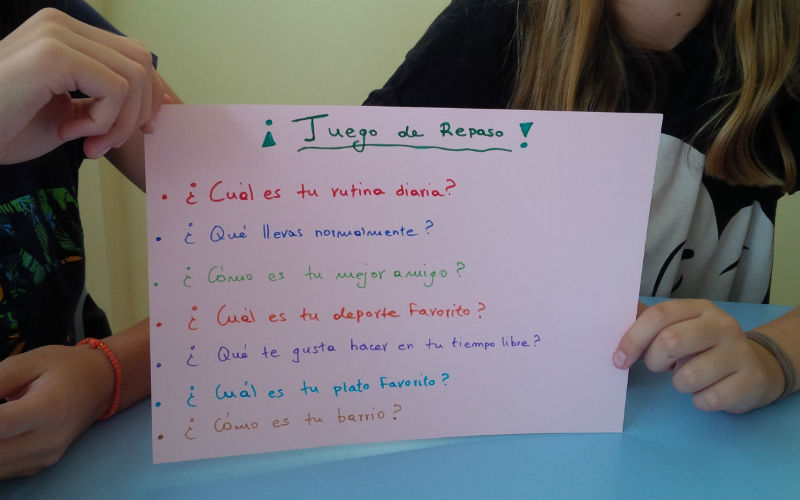 ¡ Juego de Repaso !
• ¿ Cuál es tu rutina diaria?
• ¿ Qué llevas normalmente ?
• ¿ Cómo es tu mejor amigo ?
• ¿ Cuál es tu deporte Favorito ?
• ¿ Qué te gusta hacer en tu tiempo libre?
• ¿ Cuál es tu plato Favorito ?
• ¿ Cómo es tu barrio ?